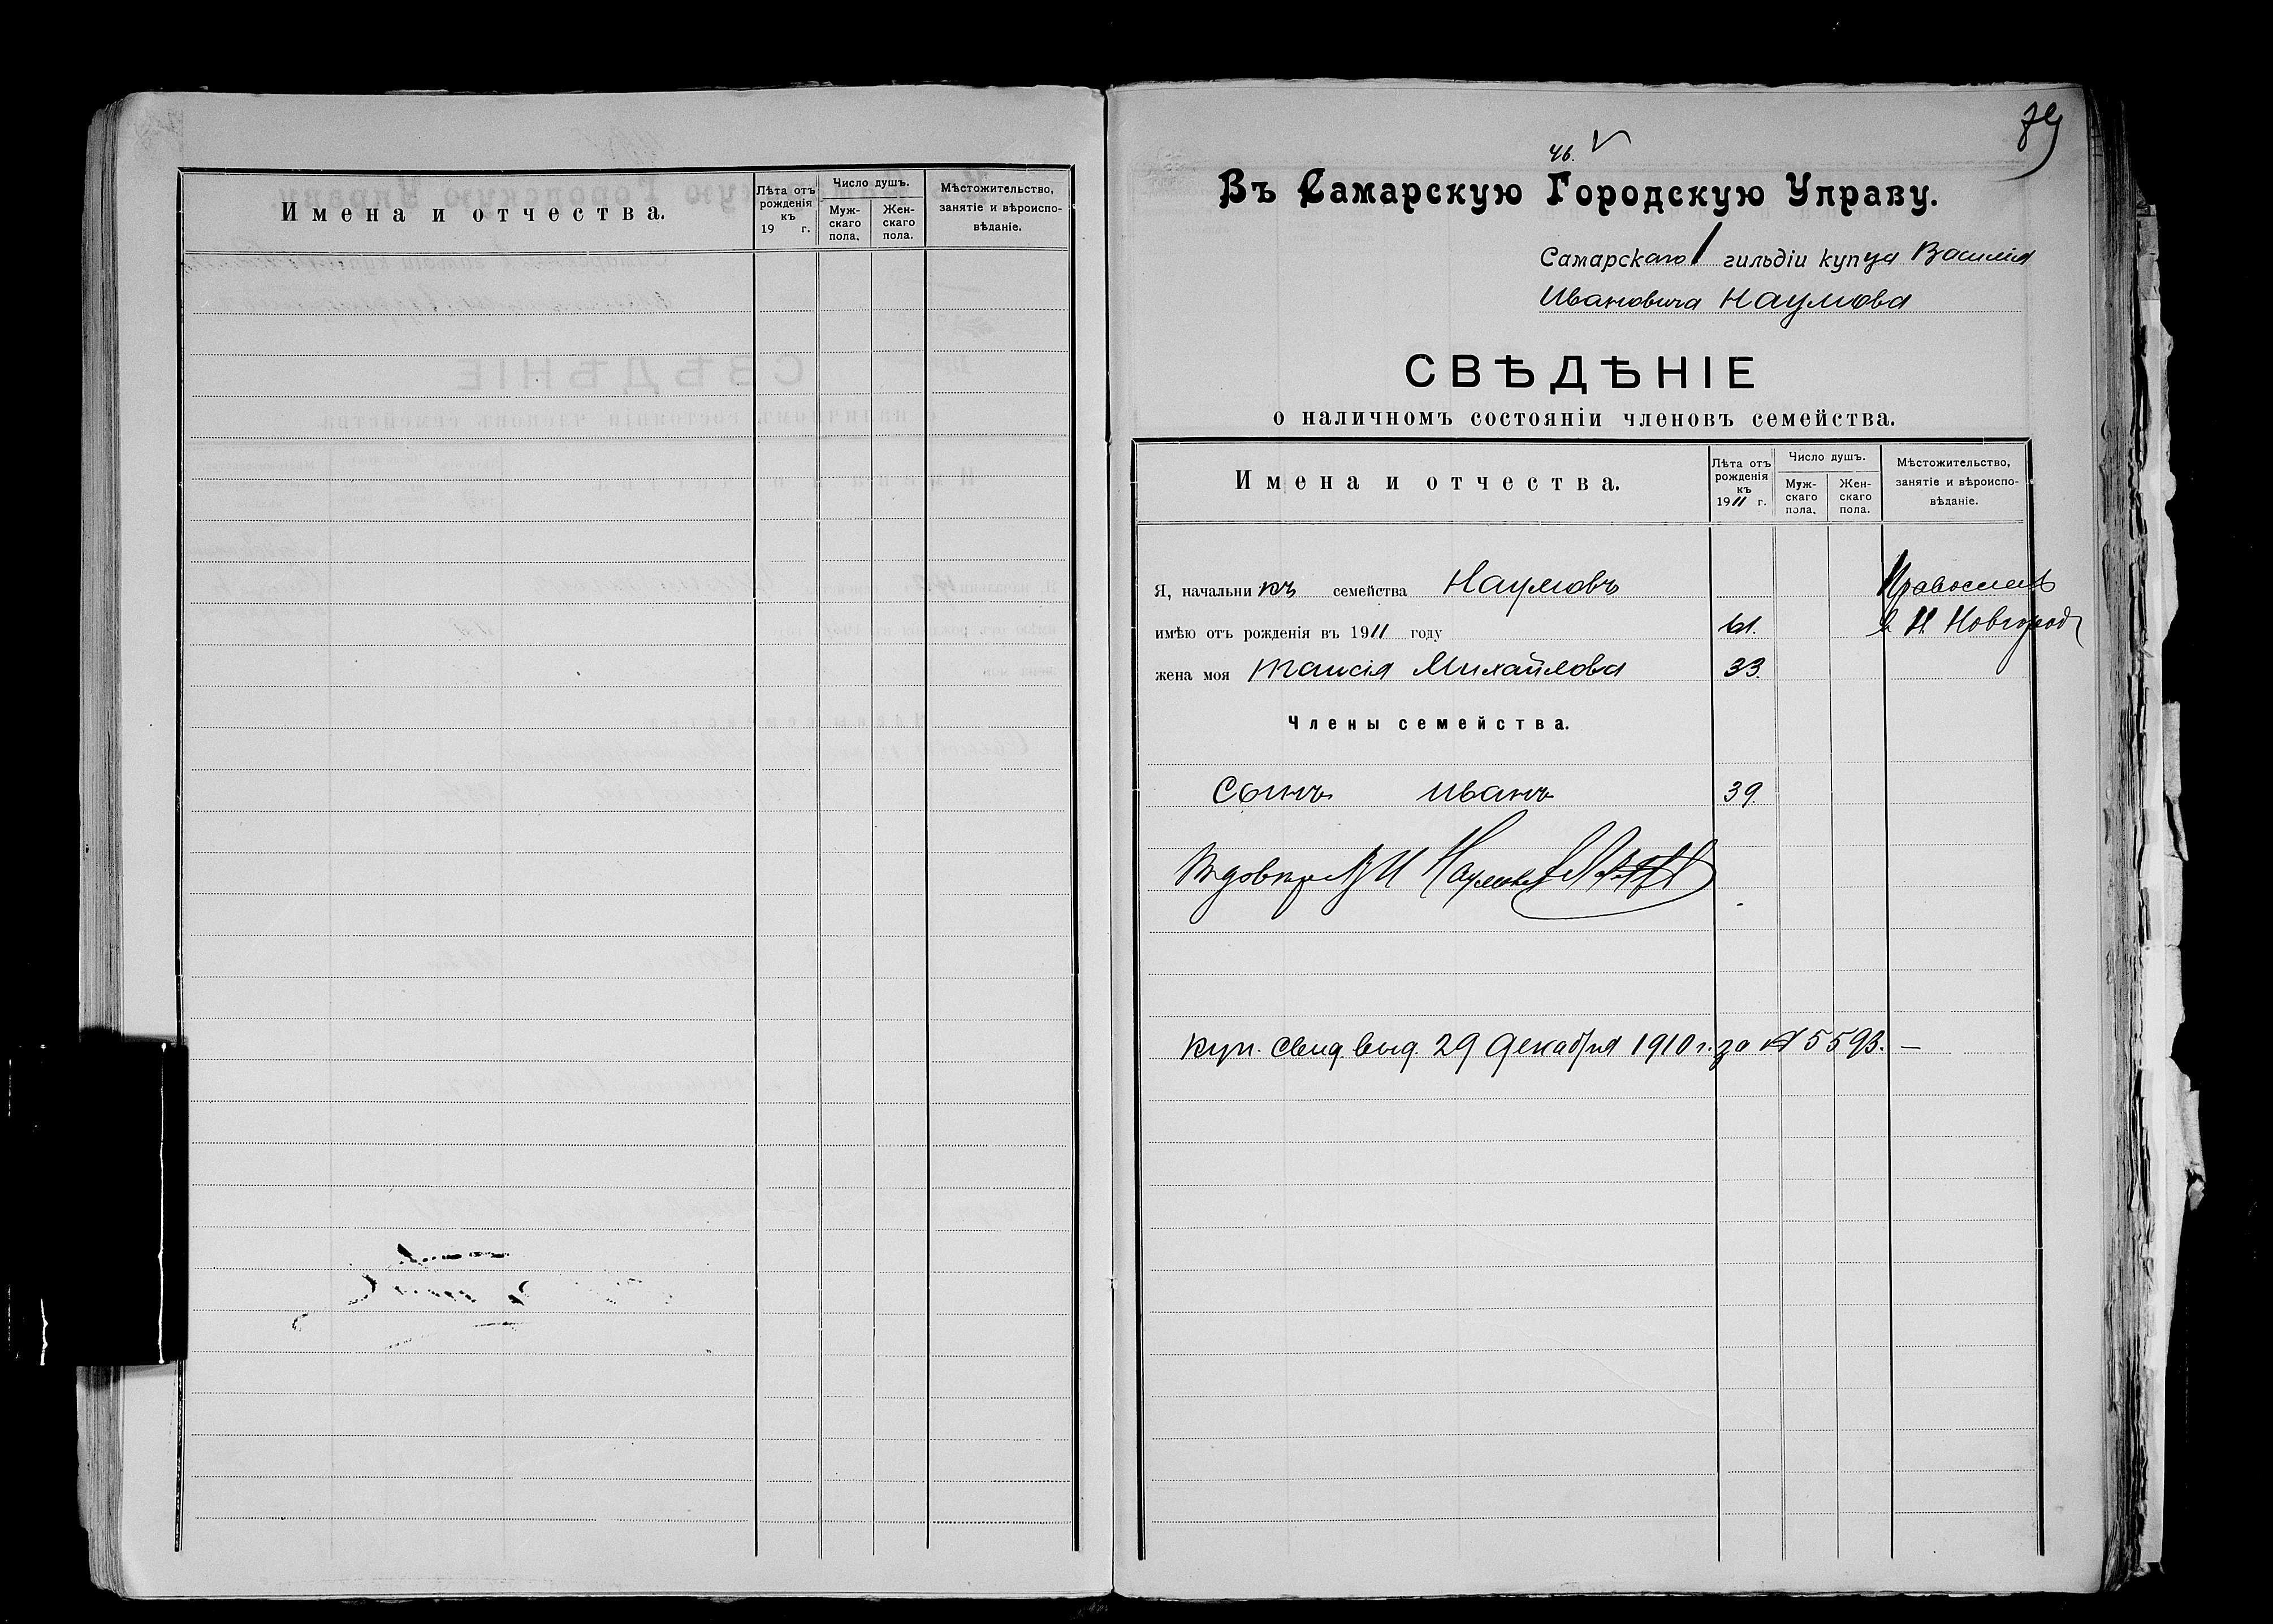 Имена и отчества.
Лѣта отъ рожденія къ 19 г.
Число душъ.
Мужскаго пола.
Женскаго пола.
Мѣстожительство, занятіе и вѣроисповѣданіе.
46.
Въ Самарскую Городскую Управу.
Самарскаго 1 гильдіи купца Василія
Ивановича Наумова
СВѢДѢНІЕ
о наличномъ состояніи членовъ семейства.
Имена и отчества.
Лѣта отъ рожденія къ 1911 г.
Число душъ.
Мужскаго пола.
Женскаго пола.
Мѣстожительство, занятіе и вѣроисповѣданіе.
Я, начальникъ семейства Наумовъ Православ
имѣю отъ рожденія въ 1911 году 61. в Н. Новгород
жена моя Таисія Михайлова 33.
Члены семейства.
Сынъ Иванъ 39.
В И Наумова
Куп. свид. выд. 29 декабря 1910 г. за № 5593. —